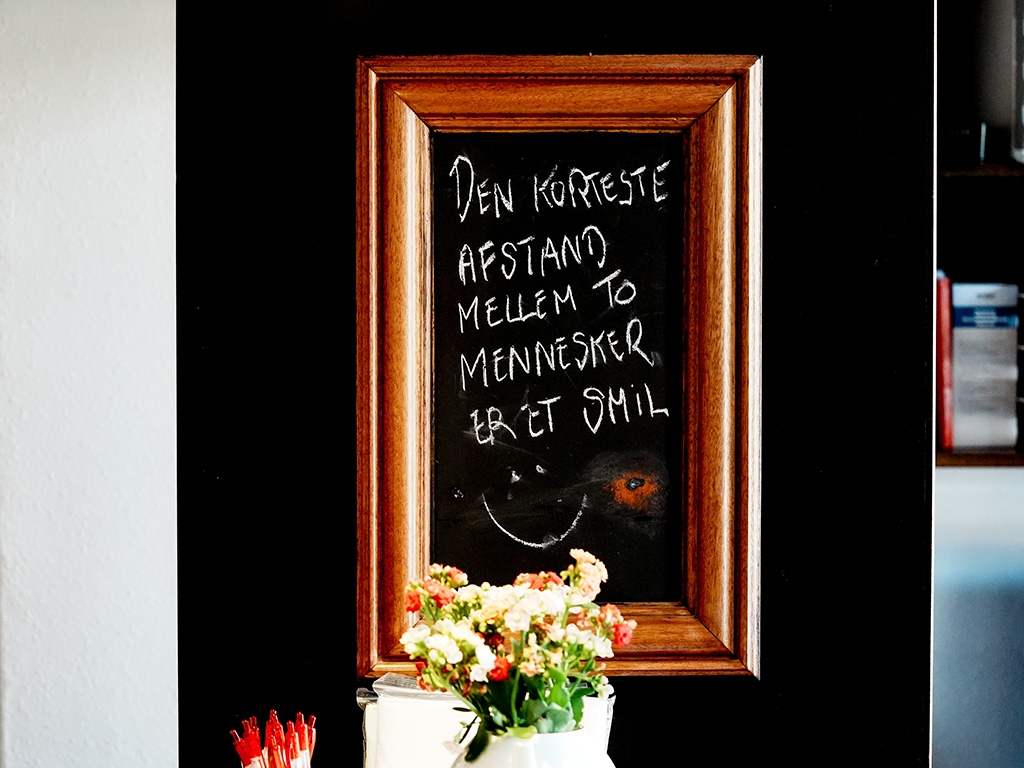 DEN KORTESTE
AFSTAND
MELLEM TO
MENNESKER
ER ET SMIL